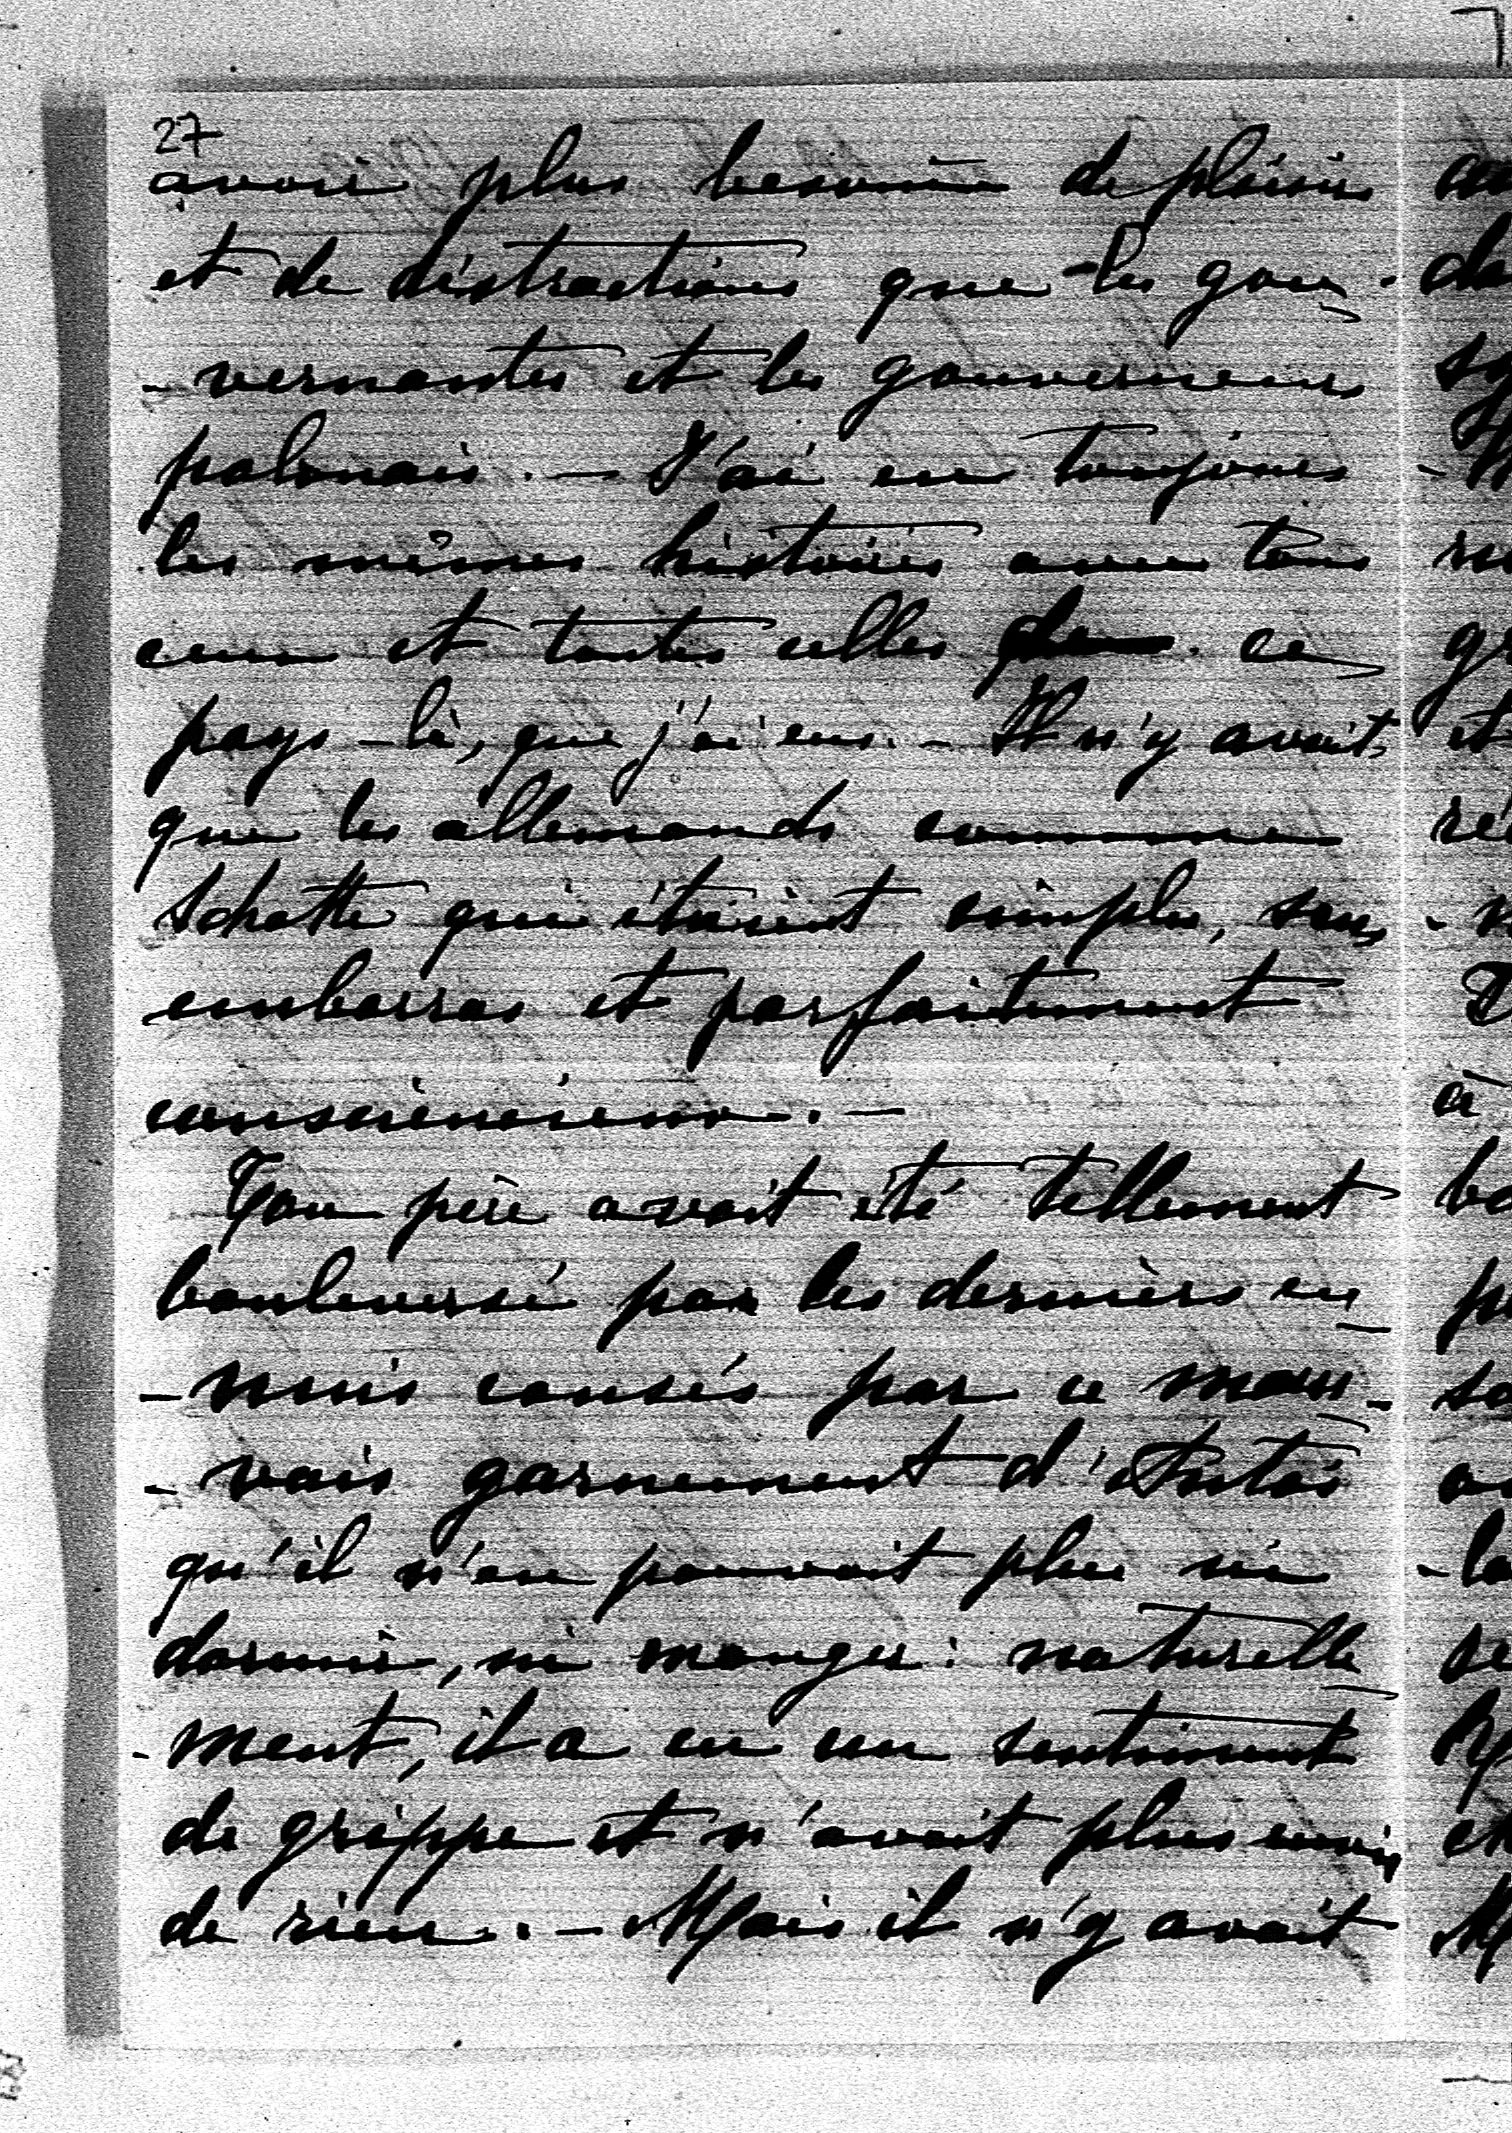 27
avoir plus besoin de plaisirs
et de distractions que les gou-
-vernantes et les gouverneurs
polonais. — J'ai eu toujours
les mêmes histoires avec tous
ceux et toutes celles de ce
pays-là, que j'ai eus. — Il n'y avait
que les allemands comme
Schatte qui étaient simples, sans
embarras et parfaitement
consciencieux. —
Ton père avait été tellement
bouleversé par les derniers en-
-nuis causés par ce mau-
-vais garnement d'Antoi
qu'il n'en pouvait plus ni
dormir, ni manger: naturelle
-ment, il a eu un sentiment
de grippe et n'avait plus envie
de rien. — Mais il n'y avait